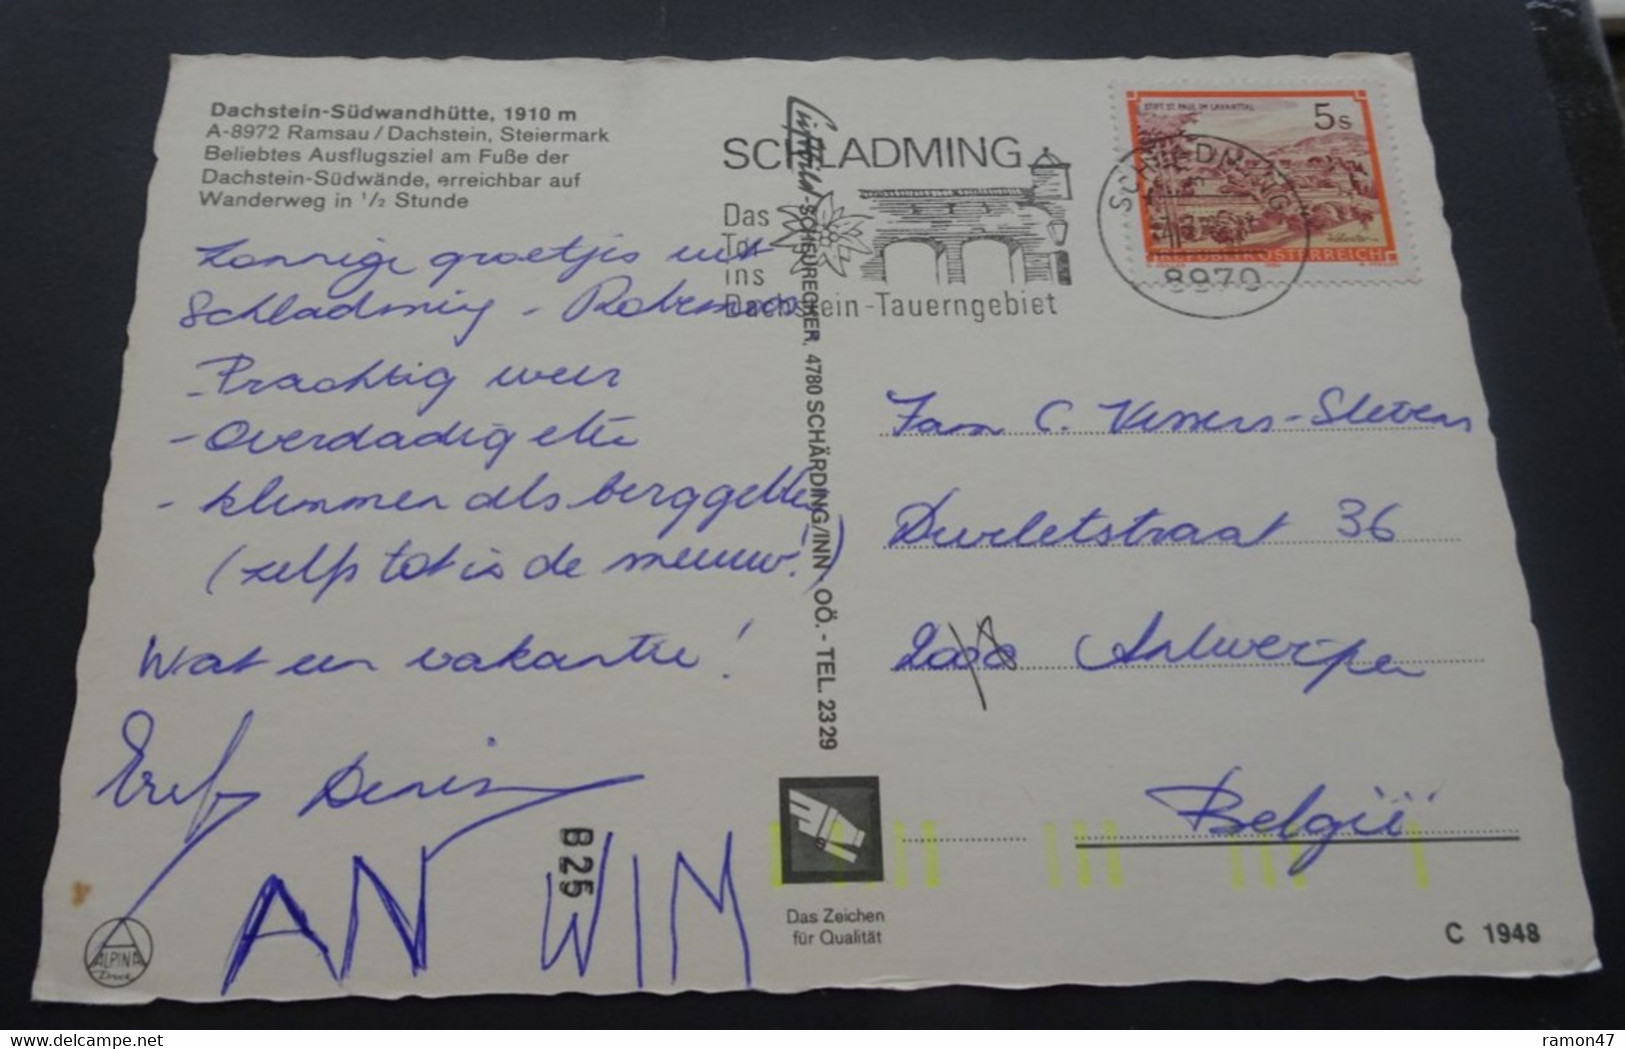 Dachstein-Südwandhütte, 1910 m
A-8972 Ramsau / Dachstein, Steiermark
Beliebtes Ausflugsziel am Fuße der
Dachstein-Südwände, erreichbar auf
Wanderweg in ½ Stunde
Zonnige groetjes uit
Schladming -
- Prachtig weer
- Overdadig eten
- klimmen als berggeiten
(zelfs tot in de sneeuw!)
Wat een vakantie!
Denis
AN WIM
B25
ALPINA
Druck
Luftbild-SCHEURECKER, 4780 SCHÄRDING/INN, OÖ. - TEL. 2329
SCHLADMING
Das
Tor
ins
Dachstein-Tauerngebiet
SCHLADMING
8970
STIFT ST. PAUL IM LAVANTTAL
5s
REPUBLIK ÖSTERREICH
Fam C. Vessers-Stevens
Durletstraat 36
2000 Antwerpen
België
Das Zeichen
für Qualität
C 1948
ramon47